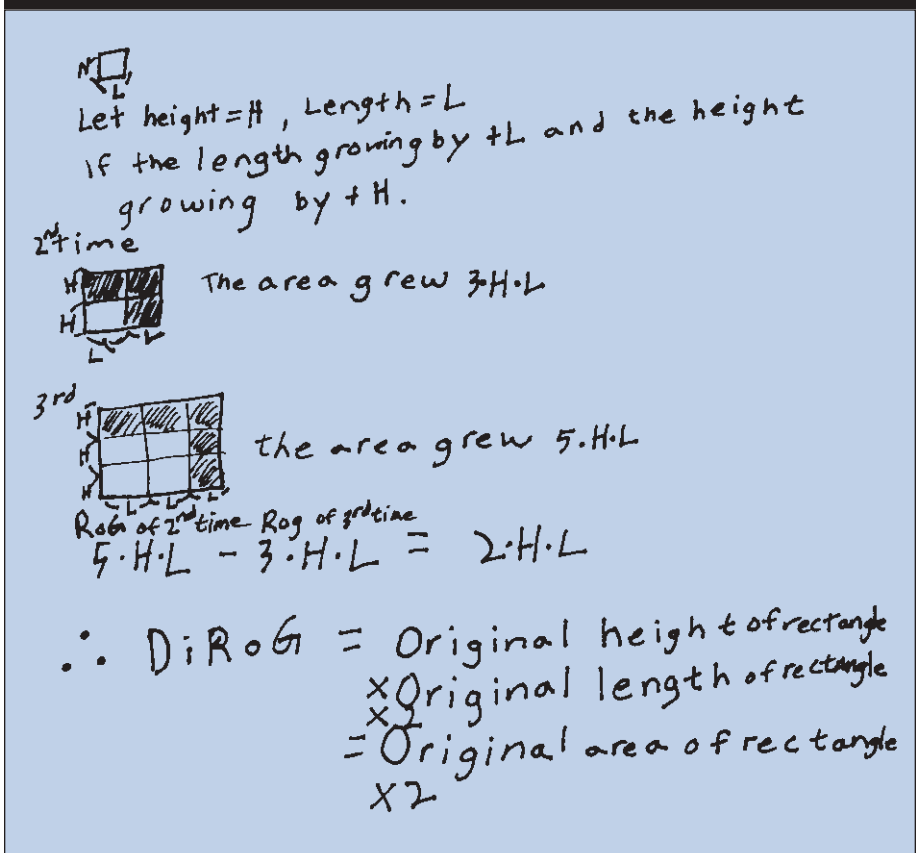 H
L
Let height = H, Length = L
If the length growing by +L and the height
growing by + H.
2nd time
H
H
L L
The area grew 3·H·L
3rd
H
H
H
L L L
the area grew 5·H·L
RoG of 2nd time Rog of 3rd time
5·H·L - 3·H·L = 2·H·L
∴ DiRoG = Original height of rectangle
×Original length of rectangle
×2
= Original area of rectangle
×2